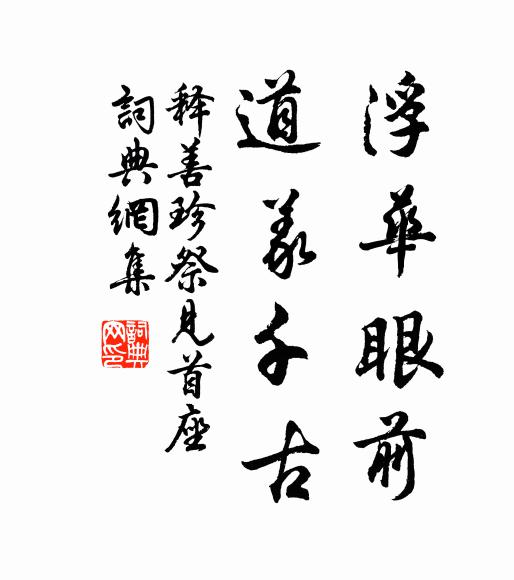 浮華眼前
道義千古
释善珍祭見首座
詞典網集
詞典網印